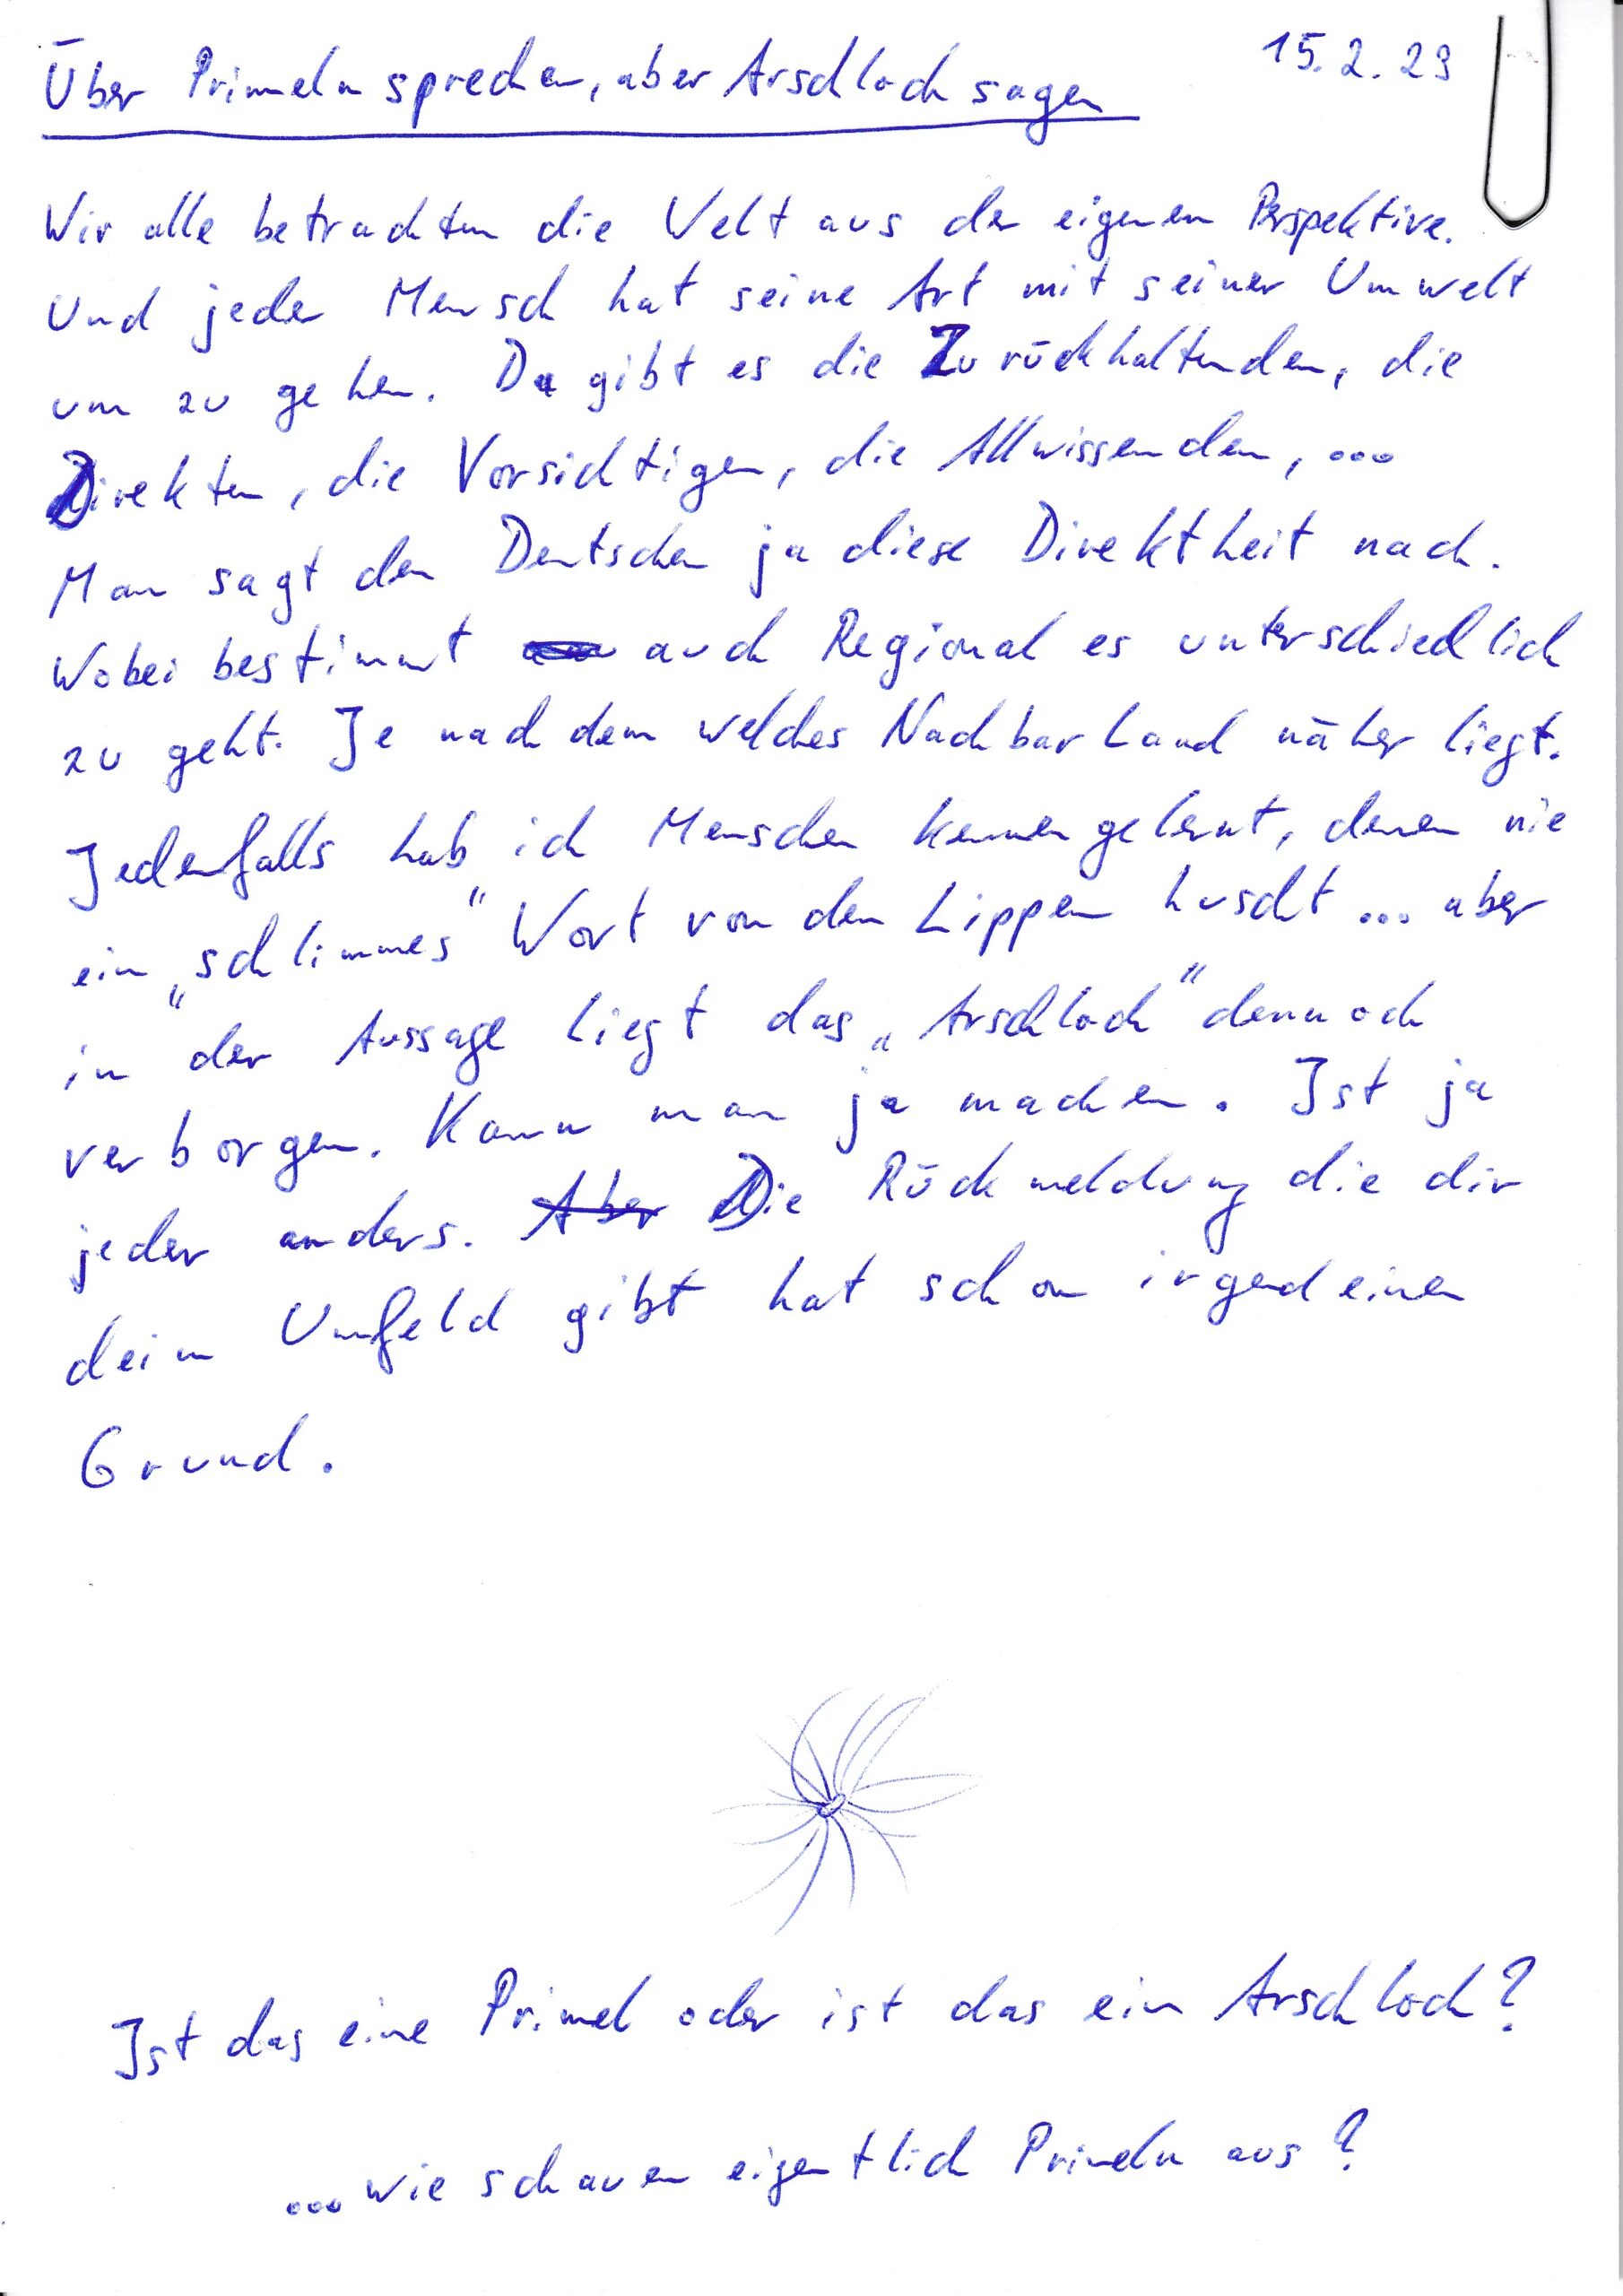 Über Primeln sprechen, aber Arschloch sagen
15.2.23
Wir alle betrachten die Welt aus der eigenen Perspektive.
Und jeder Mensch hat seine Art mit seiner Umwelt
um zu gehen. Da gibt es die Zurückhaltenden, die
Direkten, die Vorsichtigen, die Allwissenden, ...
Man sagt den Deutschen ja diese Direktheit nach.
Wobei bestimmt auch Regional es unterschiedlich
zu geht. Je nach dem welches Nachbarland näher liegt.
Jedenfalls hab ich Menschen kennengelernt, denen nie
ein „schlimmes" Wort von den Lippen huscht ... aber
in der Aussage liegt das „Arschloch" dennoch
verborgen. Kann man ja machen. Ist ja
jeder anders. Aber Die Rückmeldung die dir
dein Umfeld gibt hat schon irgendeinen
Grund.
Ist das eine Primel oder ist das ein Arschloch?
... wie schauen eigentlich Primeln aus?